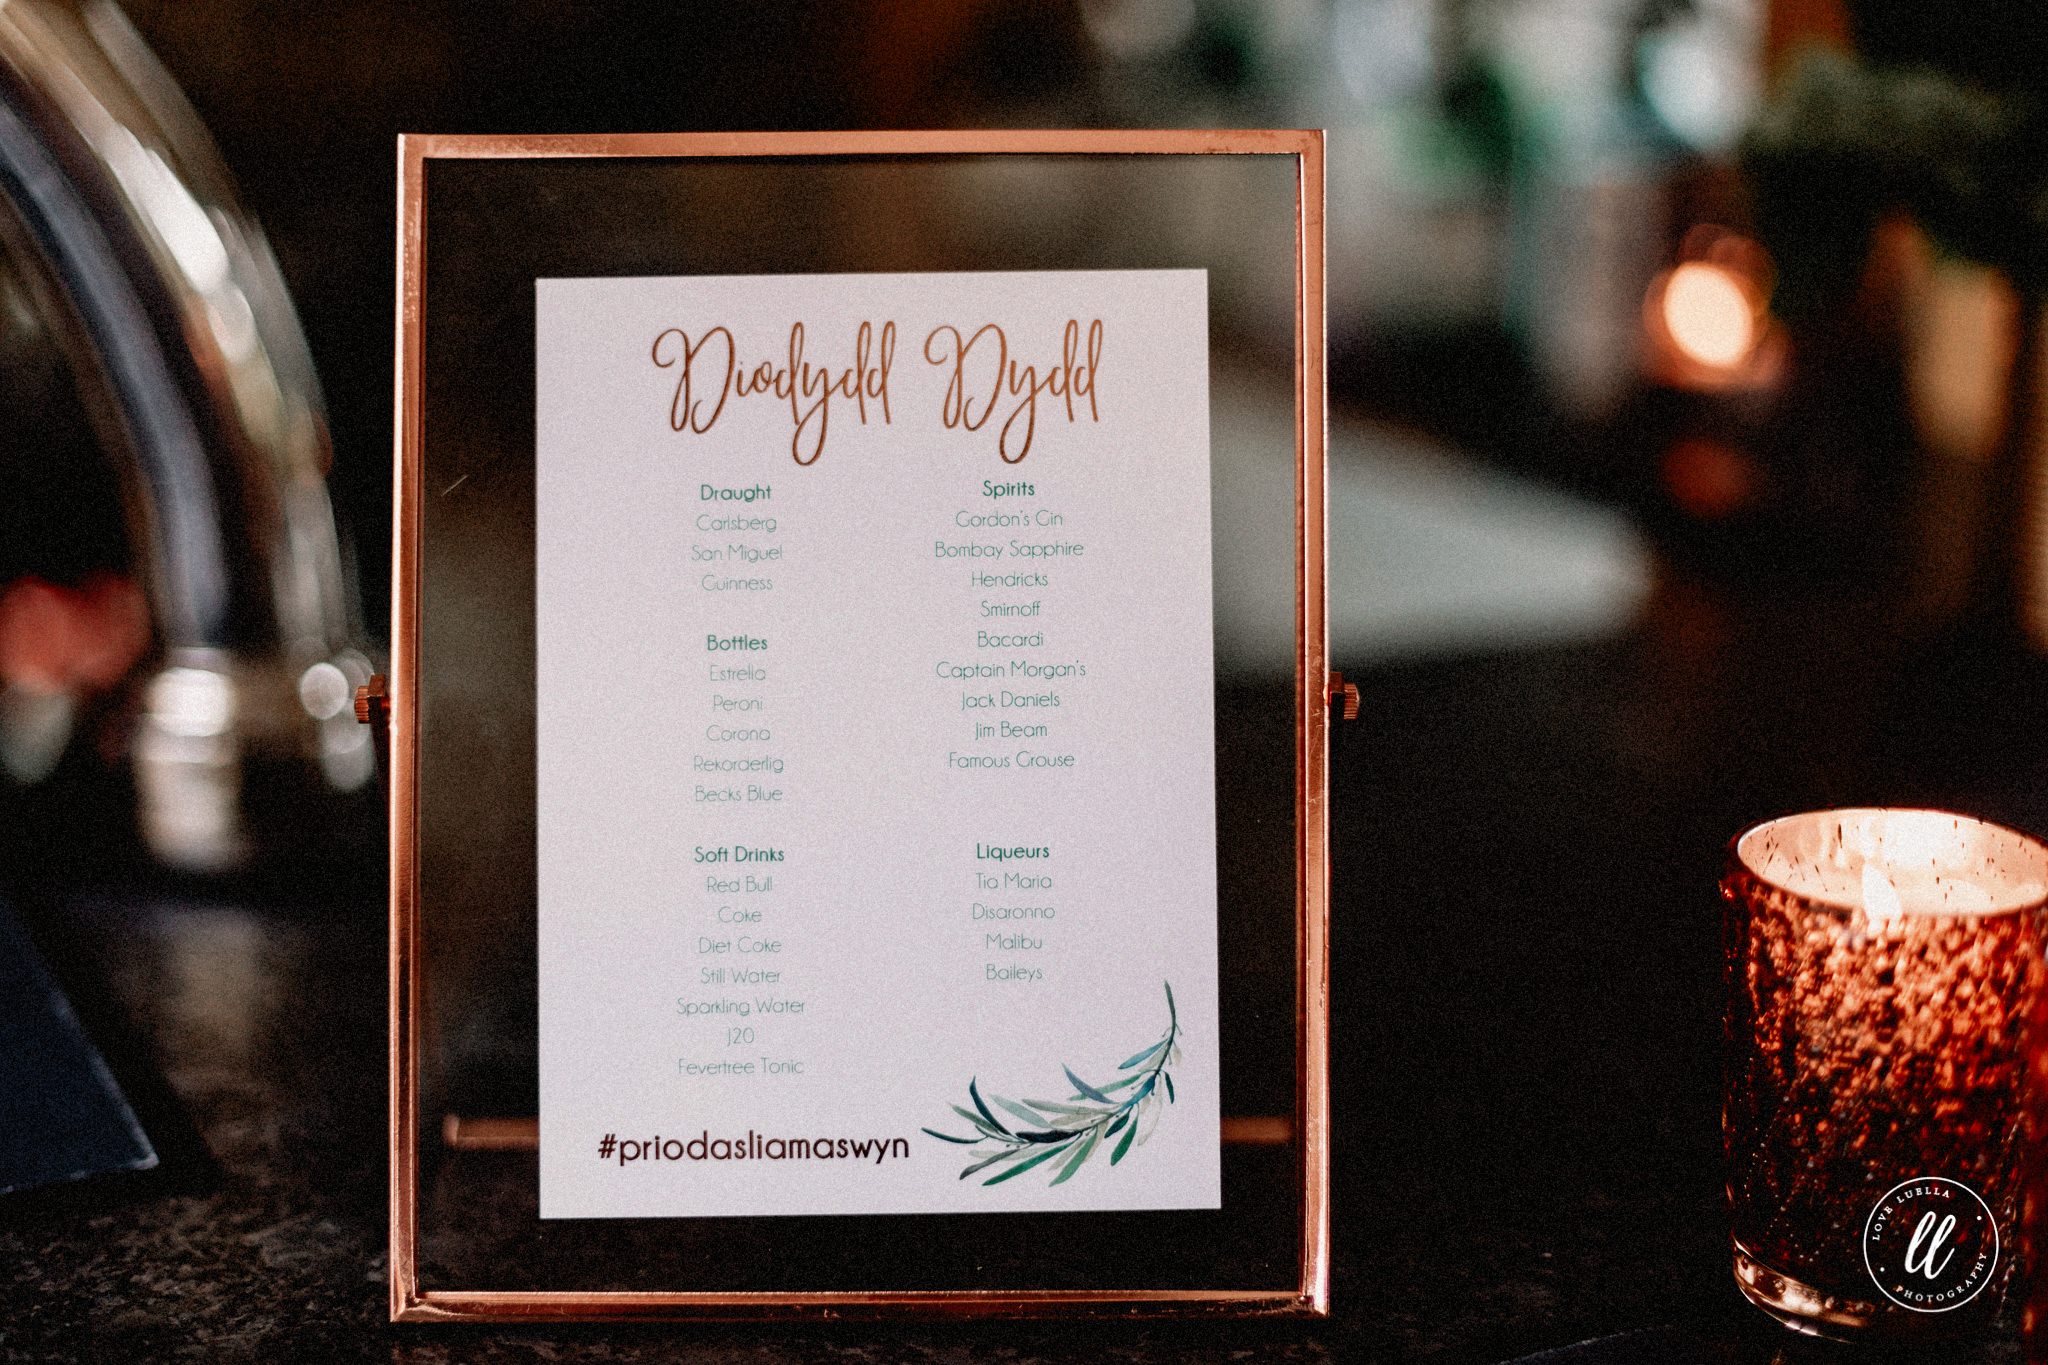 Diodydd Dydd
Draught
Carlsberg
San Miguel
Guinness
Bottles
Estrella
Peroni
Corona
Rekorderlig
Becks Blue
Soft Drinks
Red Bull
Coke
Diet Coke
Still Water
Sparkling Water
J20
Fevertree Tonic
Spirits
Gordon's Gin
Bombay Sapphire
Hendricks
Smirnoff
Bacardi
Captain Morgan's
Jack Daniels
Jim Beam
Famous Grouse
Liqueurs
Tia Maria
Disaronno
Malibu
Baileys
#priodasliamaswyn
LOVE LUELLA
ll
PHOTOGRAPHY